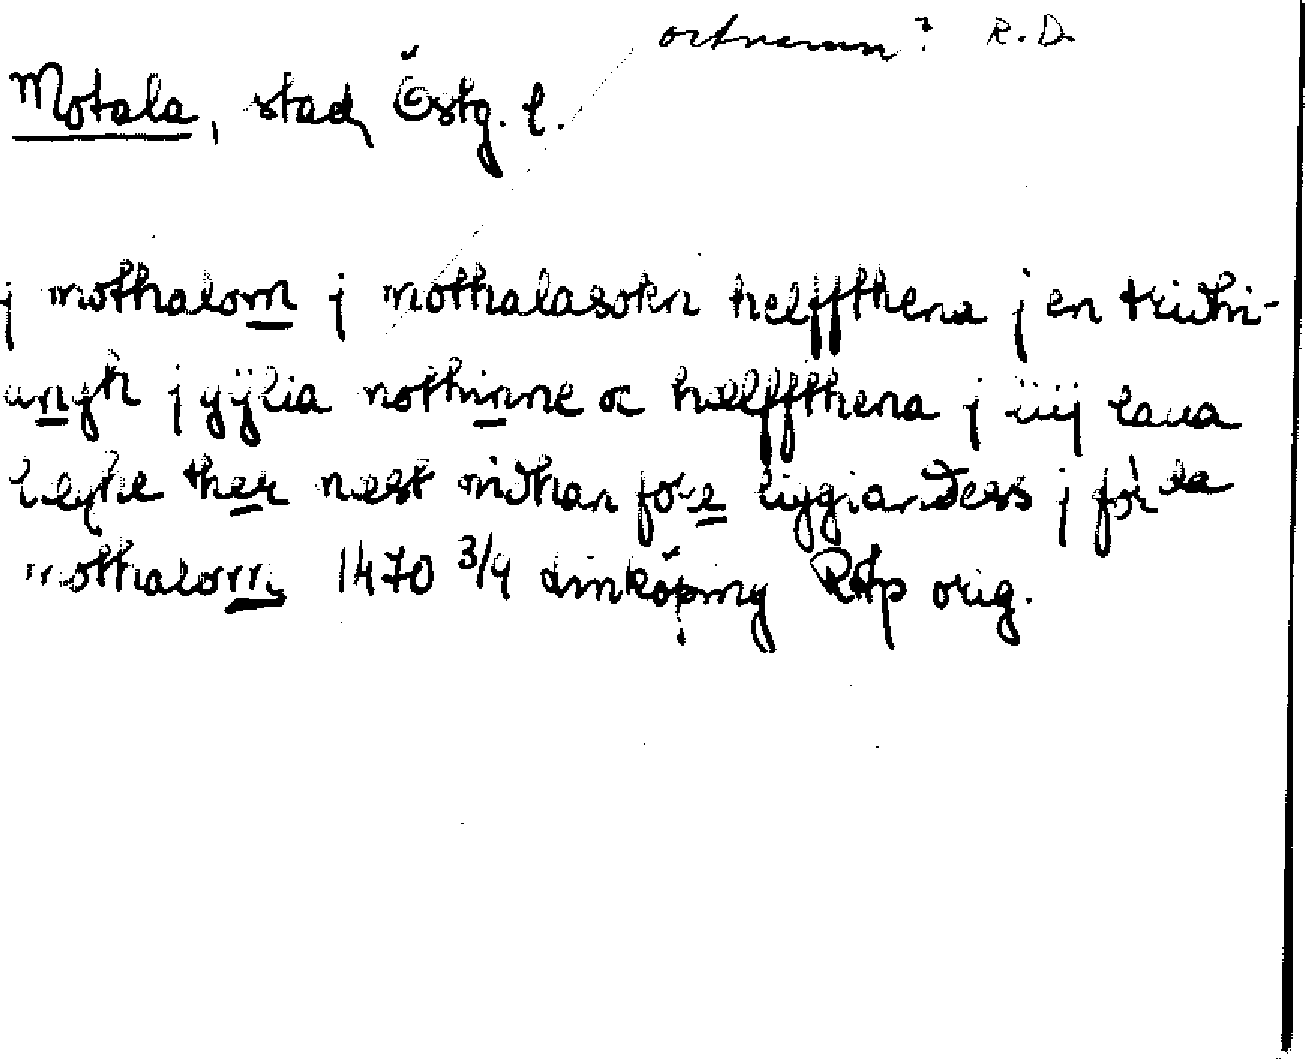 ortnamn? R.D.
Motala, stad, Östg. l.
j mothalom j mothalasokn helffthena j en tridhi-
ungh j gÿlia nothinne oc hælffthena j iiij laua
ther nest nidhan føre liggiandess j for:da
mothalom 1470 3/4 Linköping RAp orig.